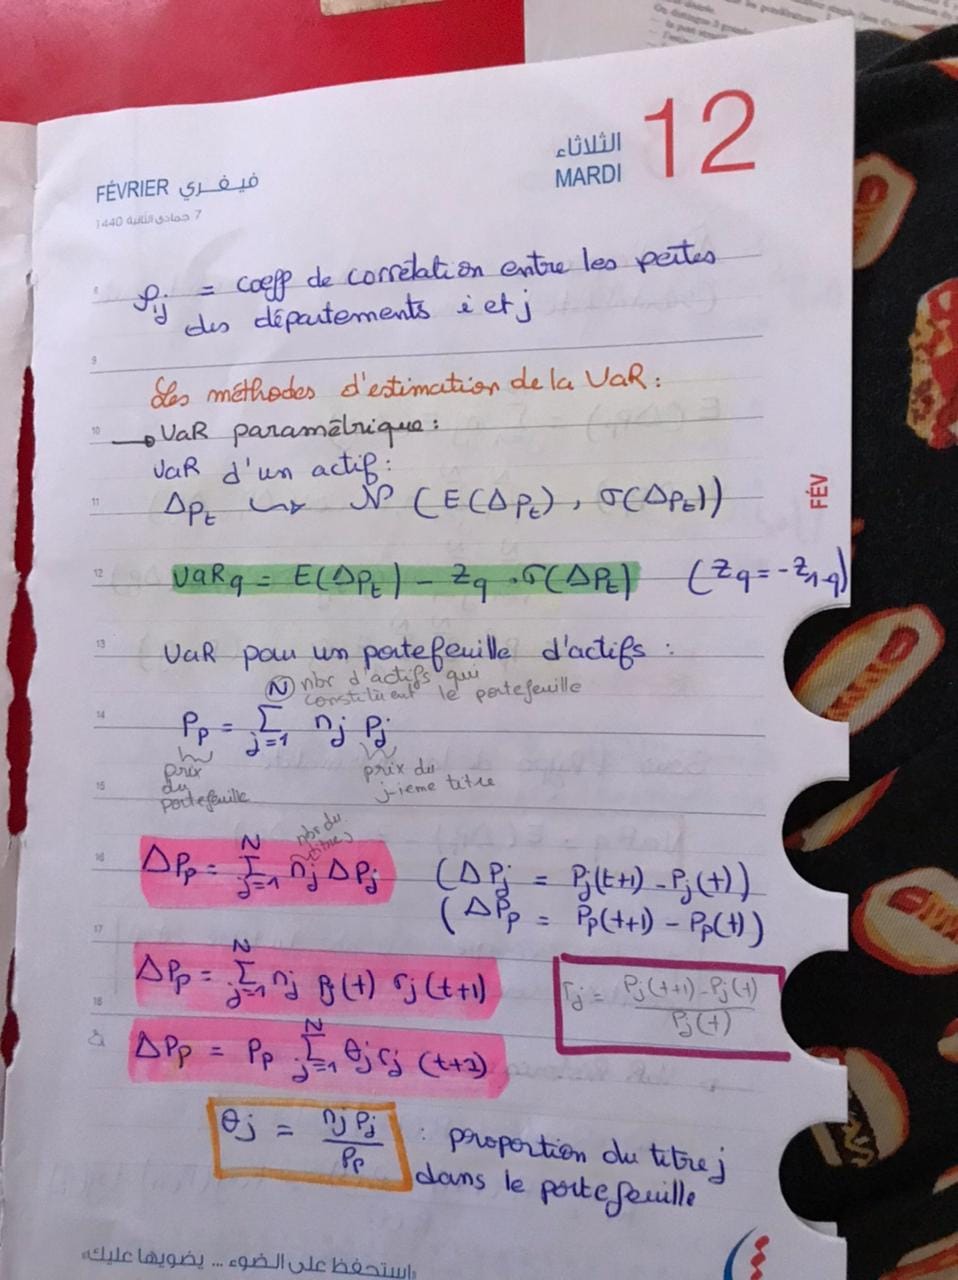 FÉVRIER فيفري
7 جمادى الثانية 1440
الثلاثاء
MARDI
12
ρij = coeff de corrélation entre les pertes
des départements i et j
Les méthodes d'estimation de la VaR :
→ VaR paramétrique :
VaR d'un actif :
ΔPt ↝ N (E(ΔPt), σ(ΔPt))
FÉV
VaRq = E(ΔPt) - Zq . σ(ΔPt) (Zq = -Z1-q)
VaR pour un portefeuille d'actifs :
N nbr d'actifs qui
constituent le portefeuille
Pp = Σ j=1 nj Pj
prix du portefeuille
prix du
j-ieme titre
nbr du titre
ΔPp = Σ j=1 N nj ΔPj (ΔPj = Pj(t+1) - Pj(t))
(ΔPp = Pp(t+1) - Pp(t))
ΔPp = Σ j=1 N nj Pj(t) rj(t+1)
rj = (Pj(t+1) - Pj(t)) / Pj(t)
ΔPp = Pp Σ j=1 N θj rj (t+1)
θj = nj Pj / Pp : proportion du titre j
dans le portefeuille
9
10
11
12
13
14
15
16
17
18
استحفظ على الضوء ... يضويها عليك